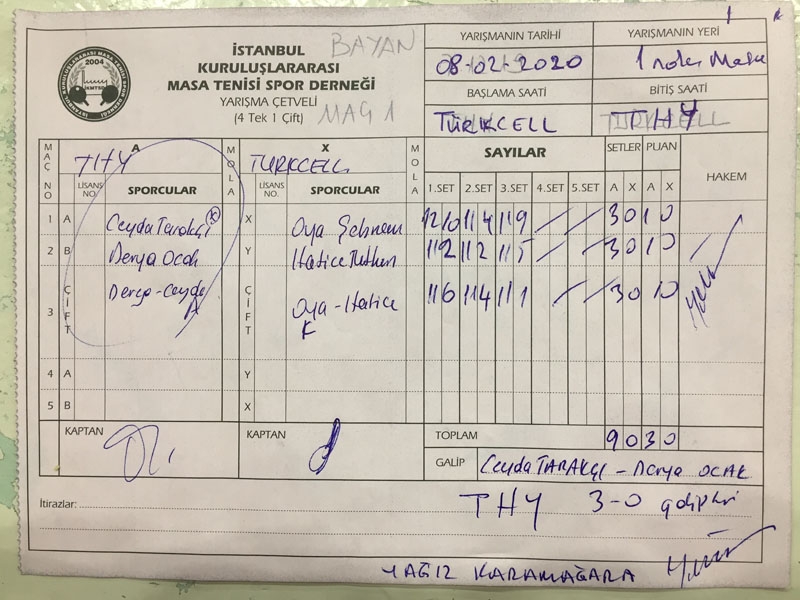 İSTANBUL
KURULUŞLARARASI
MASA TENİSİ SPOR DERNEĞİ
YARIŞMA ÇETVELİ
(4 Tek 1 Çift)
BAYAN
MAÇ 1
2004
YARIŞMANIN TARİHİ YARIŞMANIN YERİ
08-02-2020 1 nolu Masa
BAŞLAMA SAATİ BİTİŞ SAATİ
TÜRKCELL THY
MAÇ NO A MOLA X MOLA SAYILAR SETLER PUAN HAKEM
THY TÜRKCELL
LİSANS NO. SPORCULAR LİSANS NO. SPORCULAR 1.SET 2.SET 3.SET 4.SET 5.SET A X A X
1 A Ceyda Tarakçı K X Oya Şebnem 12 10 11 4 11 9 / / 3 0 1 0
2 B Derya Ocak Y Hatice 11 2 11 2 11 5 / / 3 0 1 0
3 ÇİFT Derya-Ceyda ÇİFT Oya-Hatice 11 6 11 4 11 1 / / 3 0 1 0
K
4 A Y
5 B X
KAPTAN KAPTAN TOPLAM 9 0 3 0
GALİP Ceyda TARAKÇI - Derya OCAK
İtirazlar: THY 3-0 galiptir
YAĞIZ KARAMAĞARA